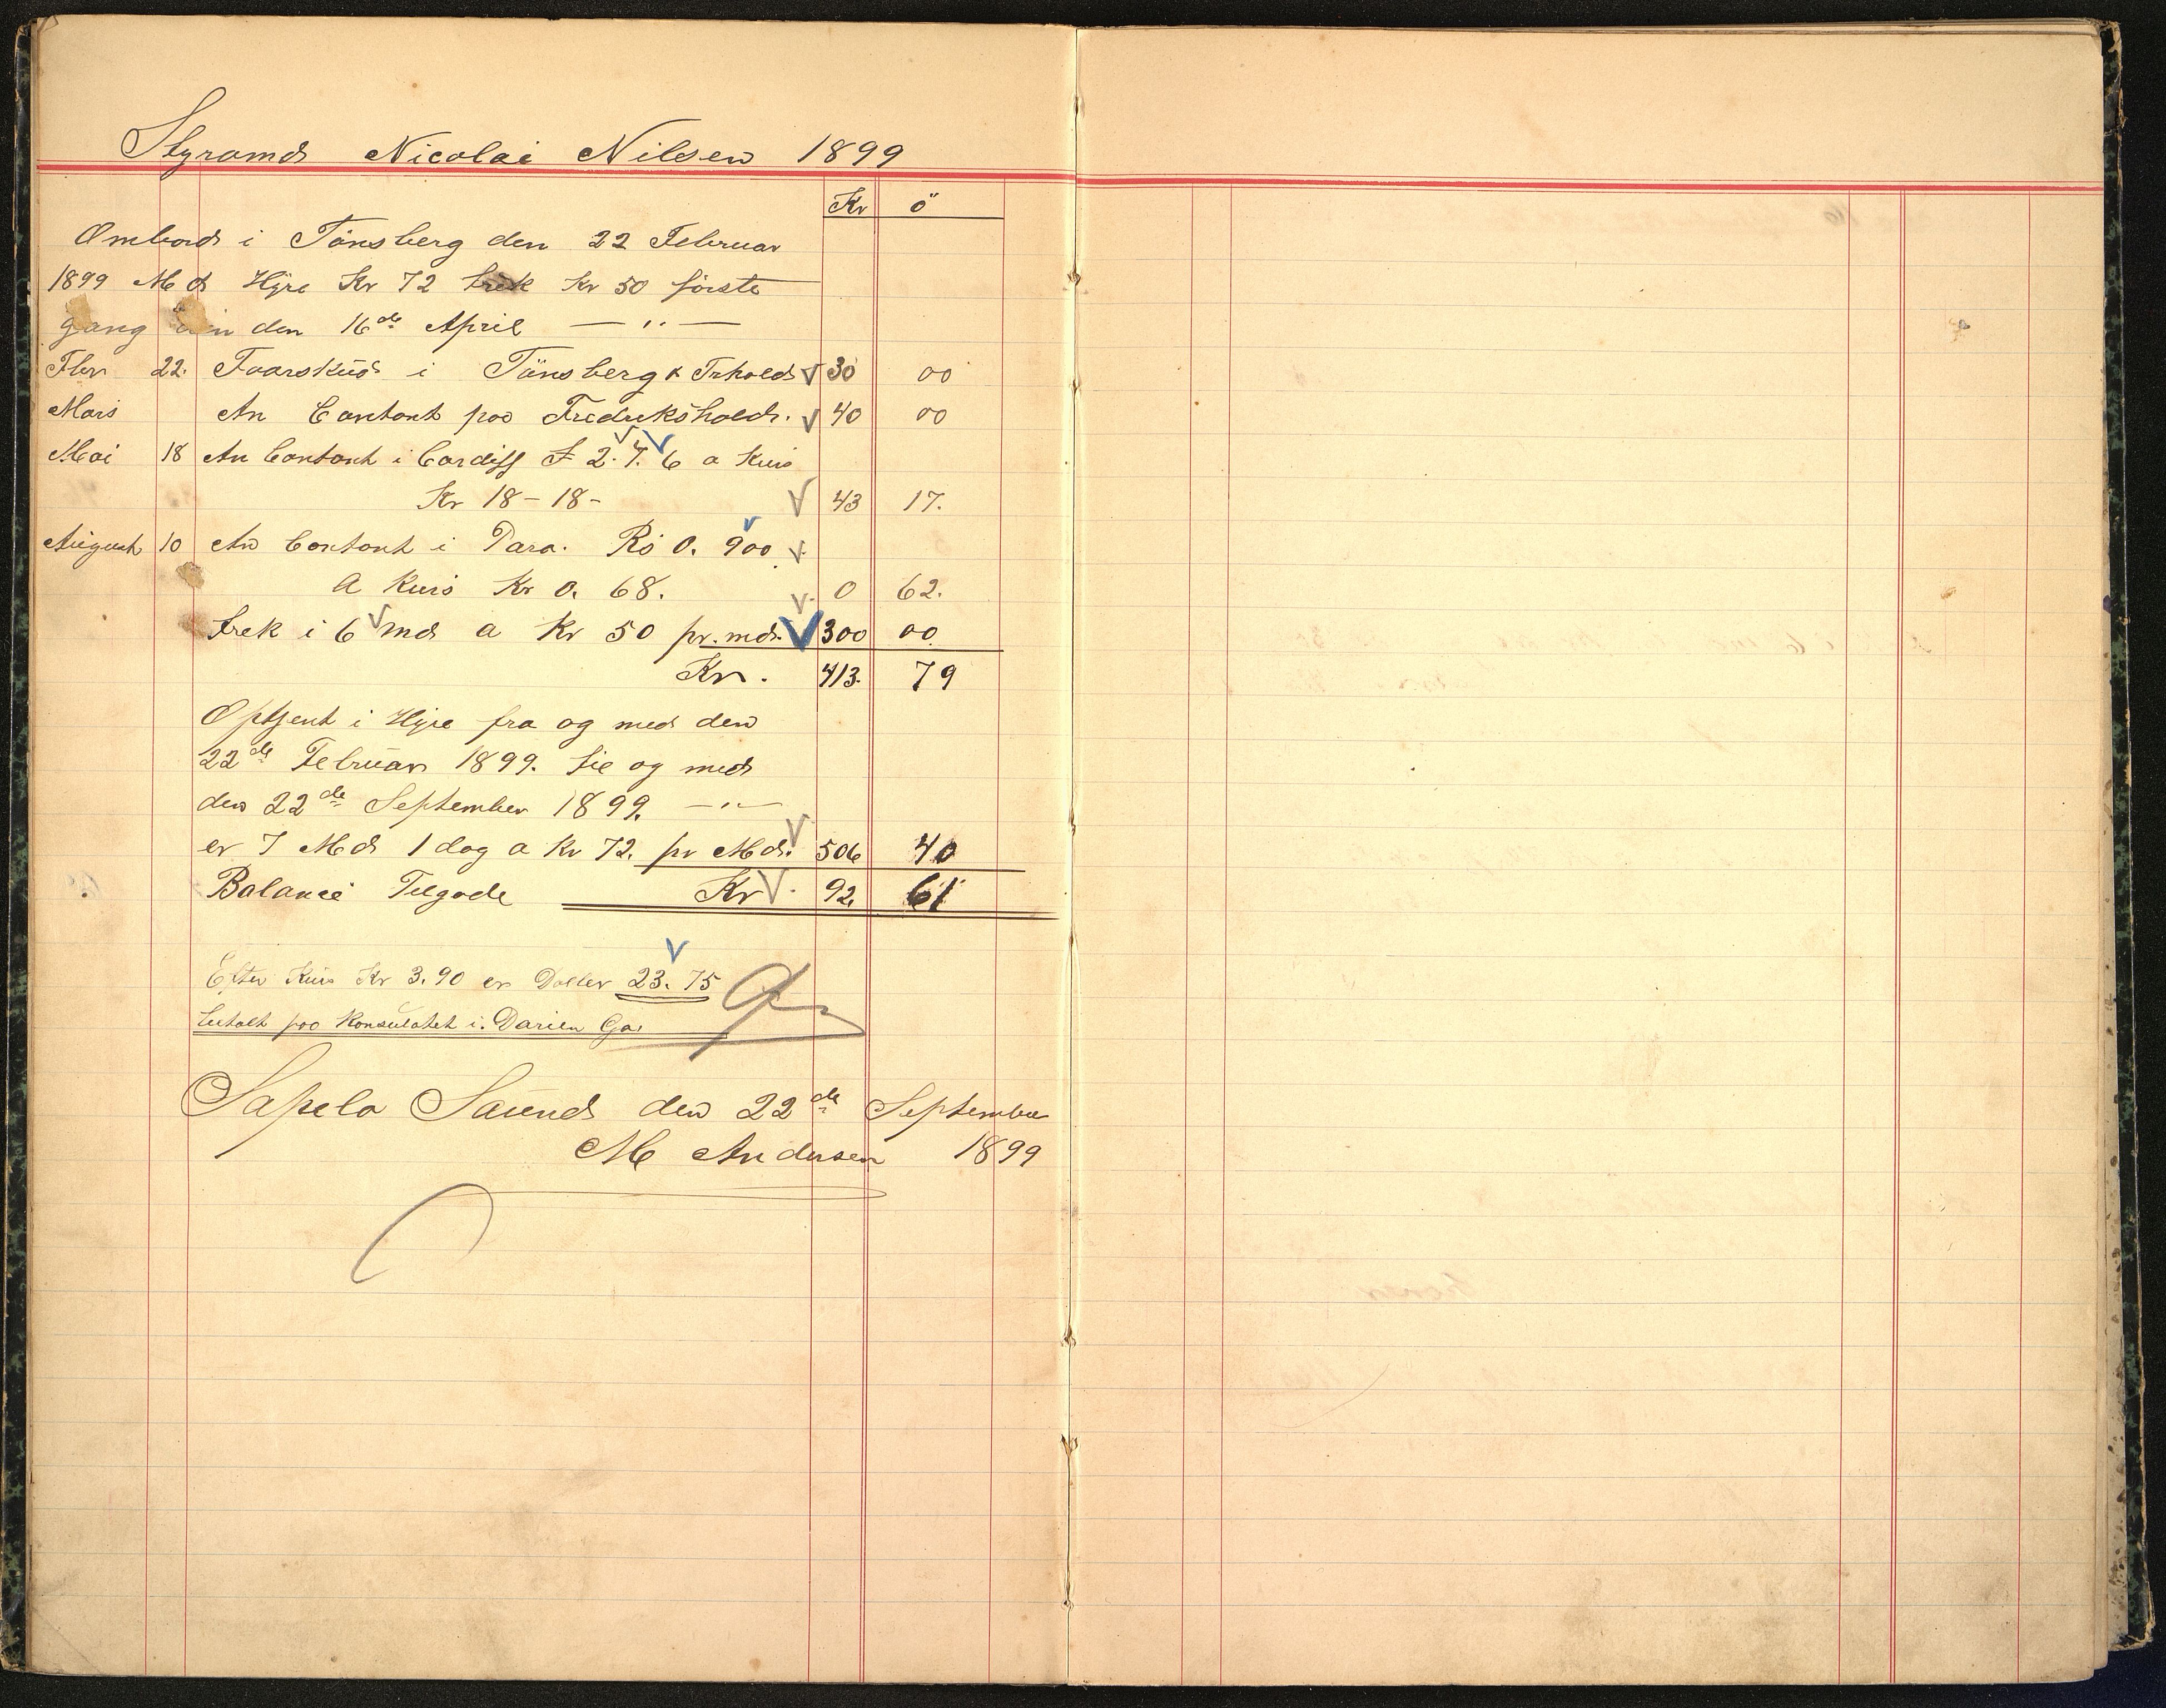 Styrmand Nicolai Nilsen 1899
Kr ö
Ombord i Tönsberg den 22 Februar
1899 Md Hyre Kr 72 trek Kr 50 förste
gang den 16de April — " —
Fbr 22. Foorskud i Tönsberg & Frhald 30 00
Mars An Contant poo Fredrikshald. 40 00
Mai 18 An Contant i Cardiff £ 2. 7. 6 a Kurs
Kr 18 - 18 - 43 17.
August 10 An Contant i Para. Rs 0. 900
a Kurs Kr 0. 68. 0 62.
trek i 6 md a Kr 50 pr. md. 300 00
Kr. 413. 79
Optjent i Hyre fra og med den
22de Februar 1899. til og med
den 22de September 1899. — " —
er 7 Md 1 dag a Kr 72. pr Md. 506 40
Balance Tilgode Kr 92. 61
Efter Kurs Kr 3.90 er Doller 23. 75
betalt poo Konsulatet i. Darien Ga.
Sapelo Saund den 22de September
M Andersen 1899